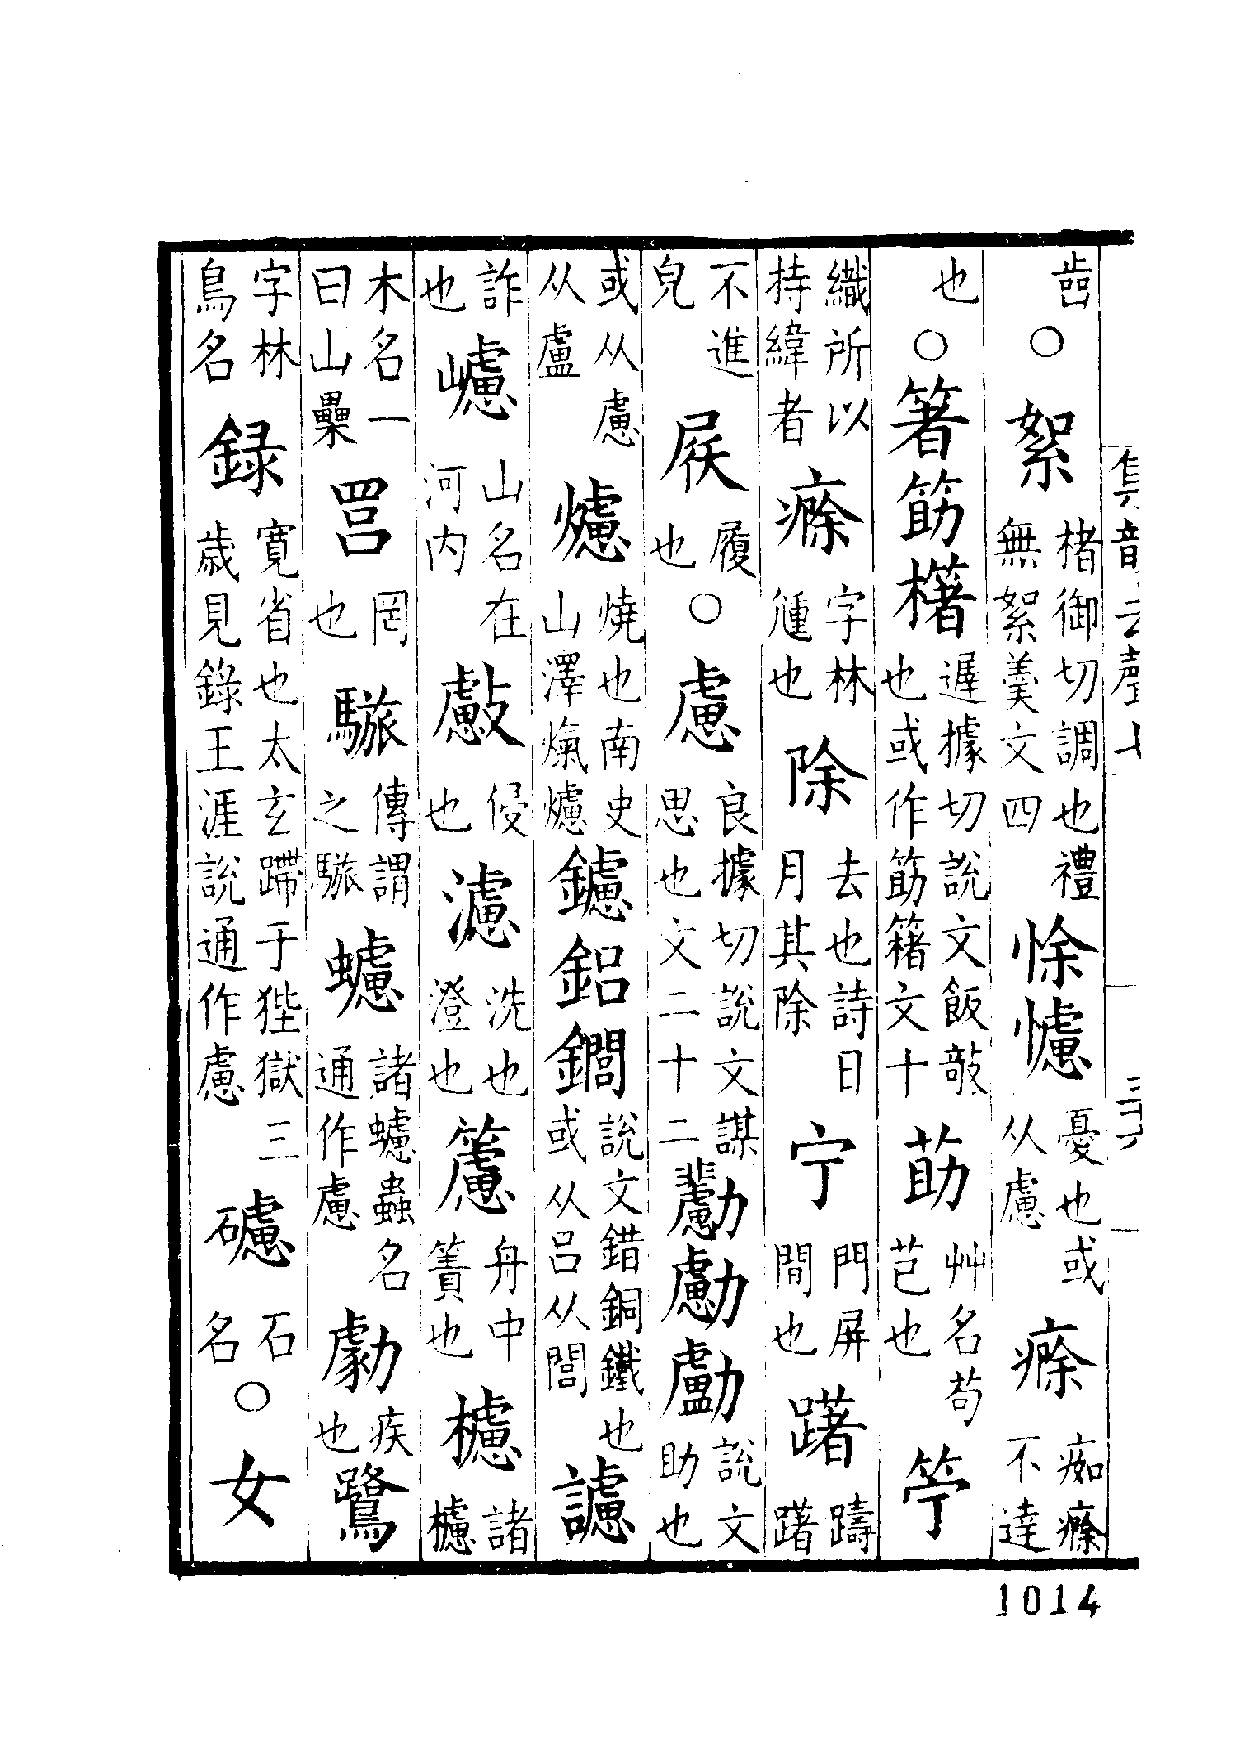 集韻去聲七 三十六
齒○絮楮御切調也禮無絮羹文四悇憈憂也或从慮瘵癡瘵不達
也○箸筯櫡遲據切說文飯敧也或作筯籍文十莇艸名茍芑也竚
織所以持緯者瘵字林㣫也除去也詩日月其除宁門屏間也躇躊躇
不進皃㞐履也○慮良據切說文謀思也文二十二勴勴勴說文助也
或从慮从盧爈燒也南史山澤爞爈鑢鋁鐗說文錯銅鐵也或从呂从閭謯
詐也㠠山名在河内㪖侵也濾洗也澄也簏舟中簀也櫖諸櫖
木名一曰山櫐罟罔也䮫傳謂之䮫蠦諸蠦蟲名通作慮勮疾也鷺
字林鳥名録寬省也太玄蹛于狴獄三歲見錄王涯說通作慮磠石名○女
1014